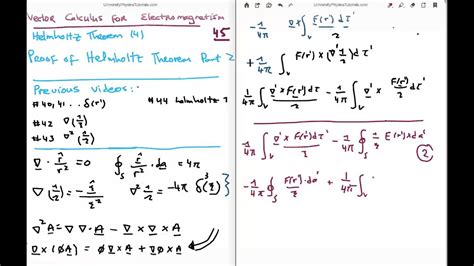 UniversityPhysicsTutorials.com
Vector Calculus For Electromagnetism
Helmholtz Theorem (4) 45
Proof of Helmholtz Theorem Part 2
Previous videos:
#40,41 .. δ(r') #44 Helmholtz
#42 ∇(1/r)
#43 ∇²(1/r)
∇ · r̂/r² = 0 ∮_S r̂/r² · da = 4π
∇(1/r) = -r̂/r² ∇² 1/r = -4π δ³(r)
∇²A = ∇∇·A - ∇×∇×A
∇×(φA) = φ∇×A + ∇φ×A
UniversityPhysicsTutorials.com
-1/4π ∫_v ∇ · F(r')/r dτ'
+1/4π ∫_v F(r') × (∇' 1/r) dτ'
1/4π ∫_v ∇' × F(r')dτ'/r - 1/4π ∫_v ∇' × F(r')/r
1/4π ∫_v ∇' × F(r')dτ'/r - 1/4π ∮_S 1/r F(r') × da'
②
-1/4π ∮_S F(r') · da'/r + 1/4π ∫_v